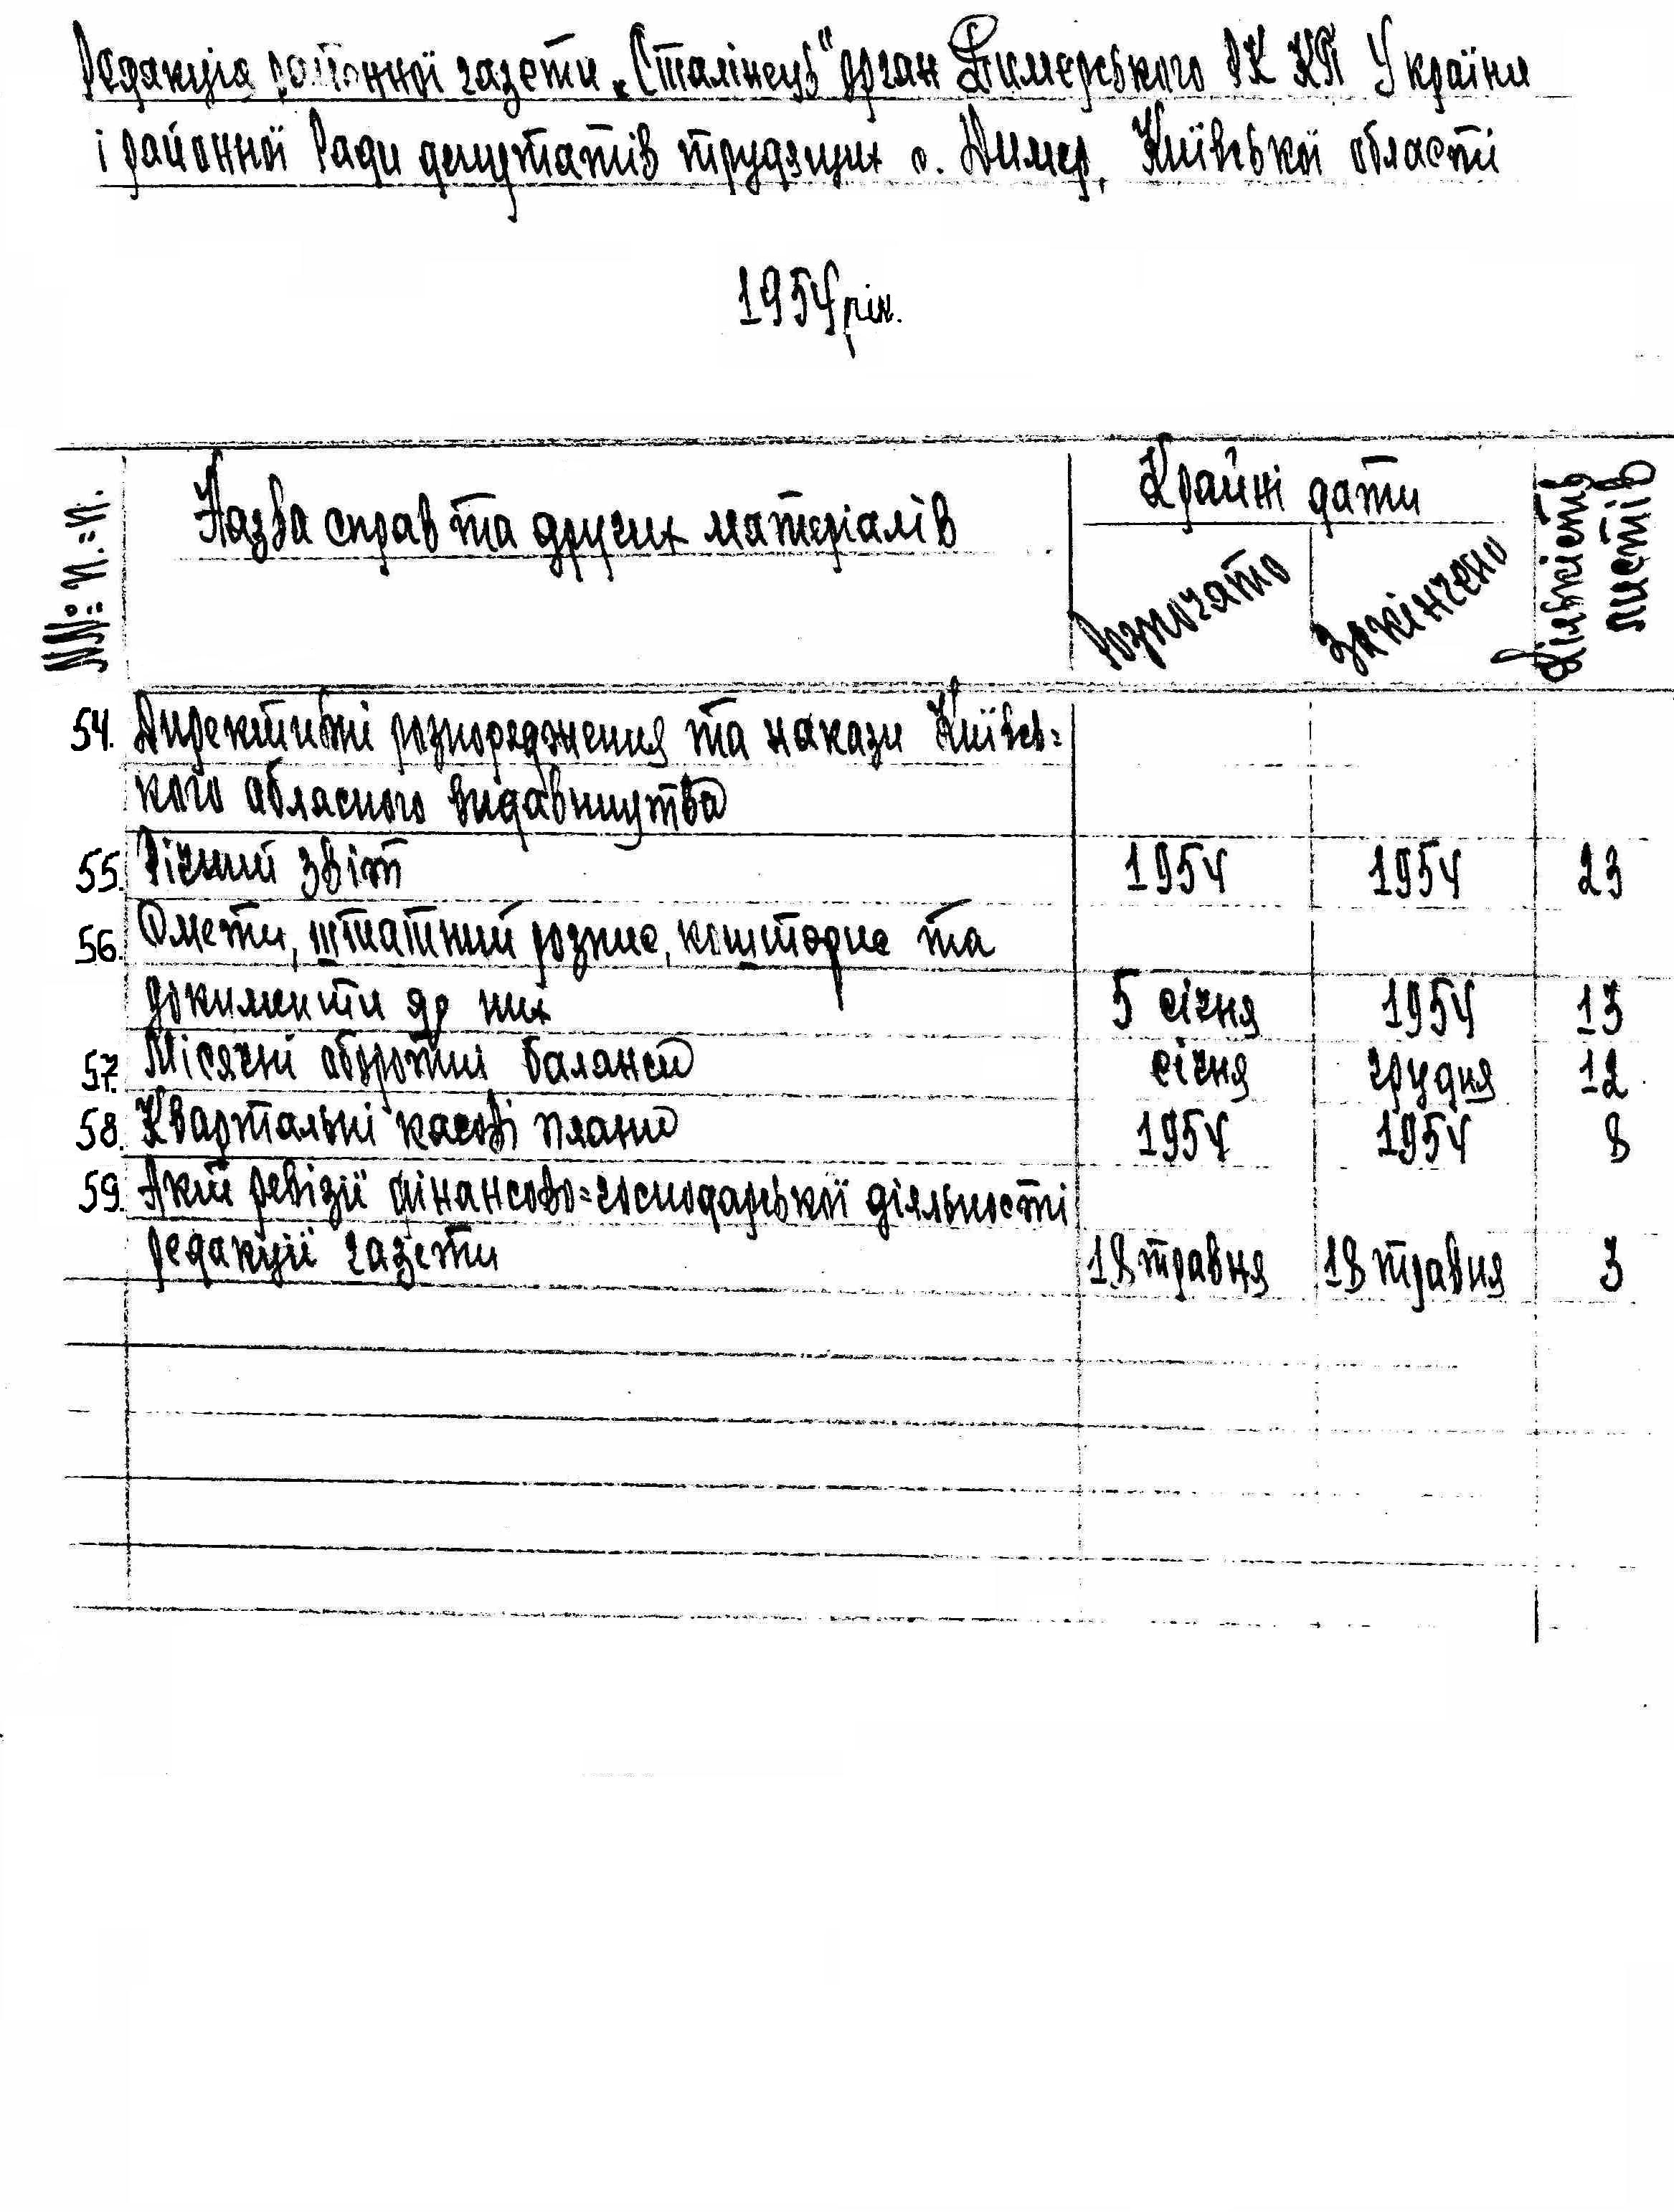 Редакція районної газети „Сталінець" орган Димерського РК КП України
і районної Ради депутатів трудящих с. Димер, Київської області
1954 рік.
№№: п.=п.
Назва справ та других матеріалів
Крайні дати
Розпочато
Закінчено
Кількість
листів
54. Директивні розпорядження та накази Київсь=
кого обласного видавництва
55. Річний звіт 1954 1954 23
56. Смети, штатний розпис, кошторис та
документи до них 5 січня 1954 13
57. Місячні оборотні баланси січня грудня 12
58. Квартальні касові плани 1954 1954 8
59. Акт ревізії фінансово=господарської діяльності
редакції газети 18 травня 18 травня 3